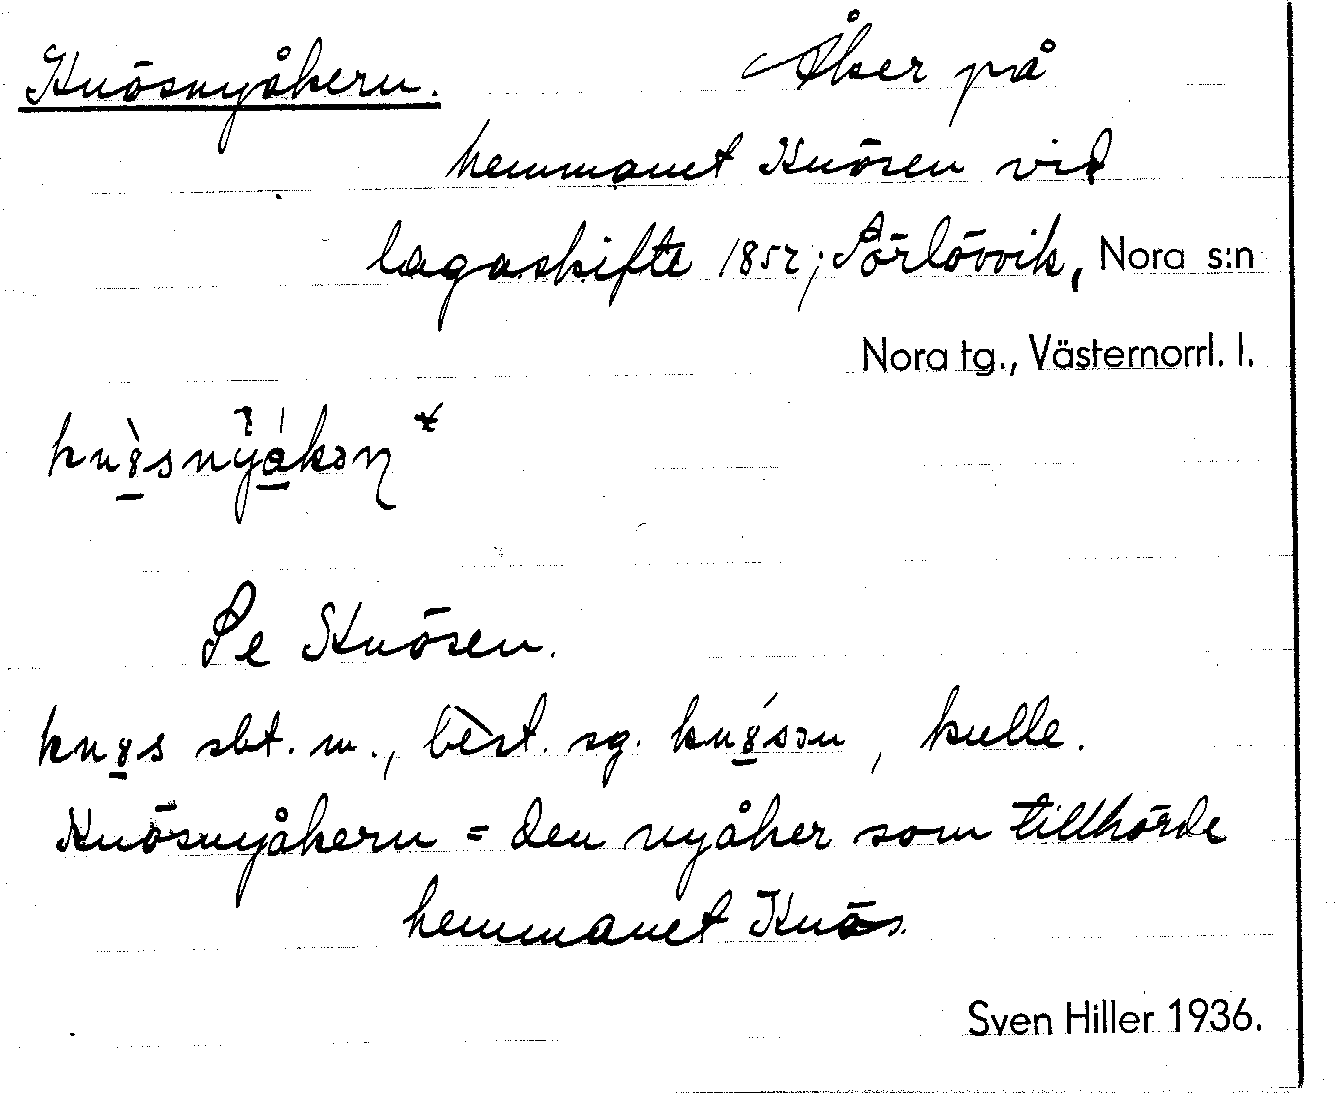 Knösnyåkern. Åker på
hemmanet Knösen vid
lagaskifte 1852; Sörlövvik, Nora s:n
Nora tg., Västernorrl. l.
Se Knösen.
sbt. m., best. sg. , kulle.
Knösnyåkern = den nyåker som tillhörde
hemmanet Knös.
Sven Hiller 1936.